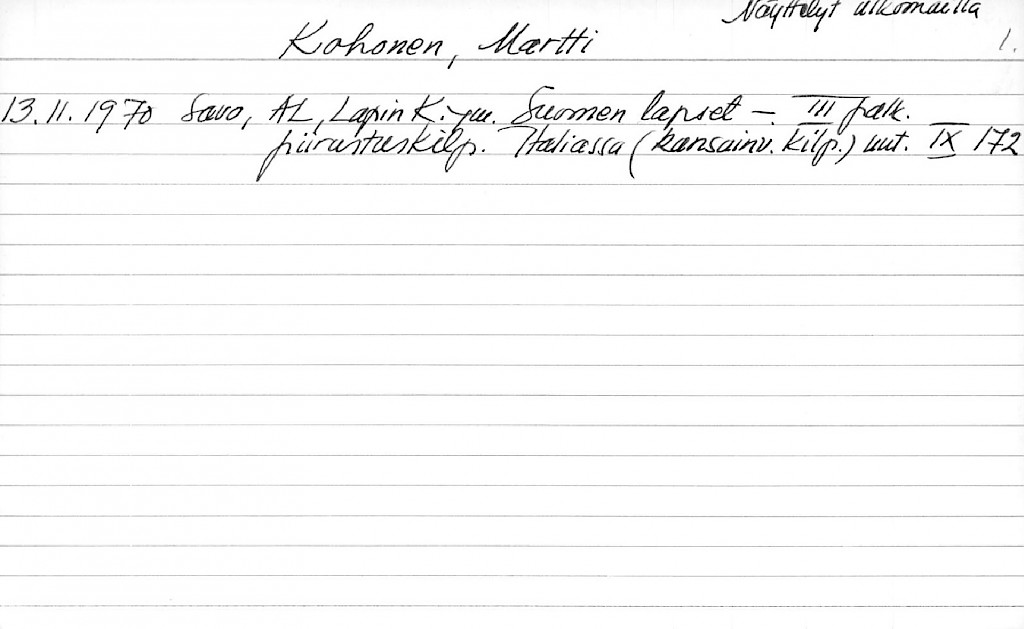 Näyttelyt ulkomailla
Kohonen, Martti 1.
13.11.1970 Savo, AL, Lapin K. ym. Suomen lapset - III palk.
piirustuskilp. Italiassa (kansainv. kilp.) uut. IX 172